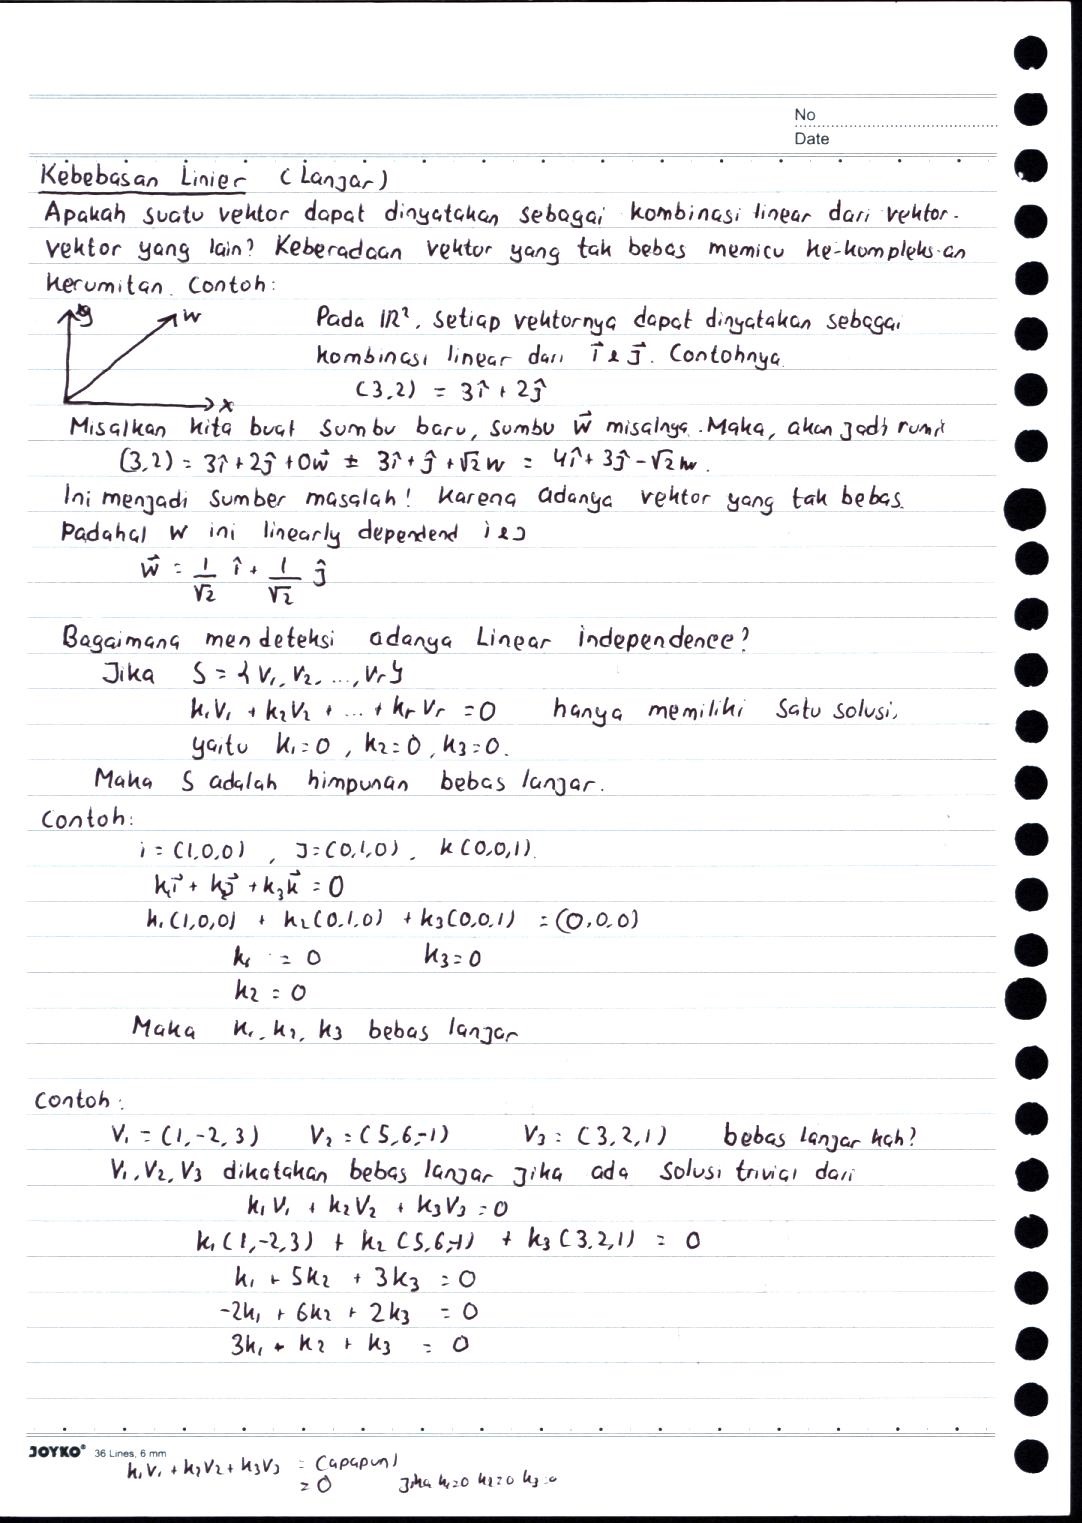 No
Date
Kebebasan Linier (Lanjar)
Apakah suatu vektor dapat dinyatakan sebagai kombinasi linear dari vektor-
vektor yang lain? Keberadaan vektor yang tak bebas memicu ke-kompleks-an
kerumitan. Contoh:
y w
Pada ℝ², setiap vektornya dapat dinyatakan sebagai
kombinasi linear dari i⃗ & j⃗. Contohnya
(3,2) = 3î + 2ĵ
x
Misalkan kita buat sumbu baru, sumbu w⃗ misalnya. Maka, akan jadi rumit
(3,2) = 3î + 2ĵ + 0w⃗ = 3î + ĵ + √2w = 4î + 3ĵ - √2w.
Ini menjadi sumber masalah! Karena adanya vektor yang tak bebas.
Padahal w ini linearly dependend i & j
w⃗ = 1/√2 î + 1/√2 ĵ
Bagaimana mendeteksi adanya Linear independence?
Jika S = {v₁, v₂, ..., vᵣ}
k₁v₁ + k₂v₂ + ... + kᵣvᵣ = 0 hanya memiliki satu solusi,
yaitu k₁=0, k₂=0, k₃=0.
Maka S adalah himpunan bebas lanjar.
Contoh:
i = (1,0,0), j = (0,1,0), k (0,0,1).
k₁i⃗ + k₂j⃗ + k₃k⃗ = 0
k₁(1,0,0) + k₂(0,1,0) + k₃(0,0,1) = (0,0,0)
k₁ = 0 k₃ = 0
k₂ = 0
Maka k₁, k₂, k₃ bebas lanjar
Contoh:
V₁ = (1,-2,3) V₂ = (5,6,-1) V₃ = (3,2,1) bebas lanjar kah?
V₁, V₂, V₃ dikatakan bebas lanjar jika ada solusi trivial dari
k₁V₁ + k₂V₂ + k₃V₃ = 0
k₁(1,-2,3) + k₂(5,6,-1) + k₃(3,2,1) = 0
k₁ + 5k₂ + 3k₃ = 0
-2k₁ + 6k₂ + 2k₃ = 0
3k₁ - k₂ + k₃ = 0
JOYKO® 36 Lines, 6 mm
k₁V₁ + k₂V₂ + k₃V₃ = (apapun)
= 0 Jika k₁=0 k₂=0 k₃=0